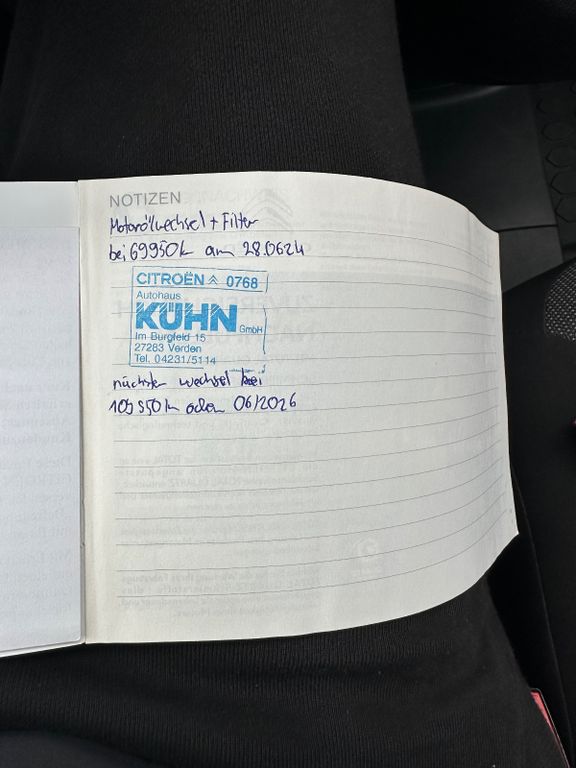 NOTIZEN
Motorölwechsel + Filter
bei 69950k am 28.0624
CITROËN 0768
Autohaus
KÜHN GmbH
Im Burgfeld 15
27283 Verden
Tel. 04231/5114
nächster wechsel bei
109950k oder 06/2026